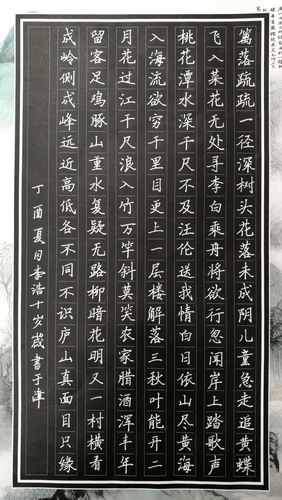 篱落疏疏一径深树头花落未成阴儿童急走追黄蝶
飞入菜花无处寻李白乘舟将欲行忽闻岸上踏歌声
桃花潭水深千尺不及汪伦送我情白日依山尽黄海
入海流欲穷千里目更上一层楼解落三秋叶能开二
月花过江千尺浪入竹万竿斜莫笑农家腊酒浑丰年
留客足鸡豚山重水复疑无路柳暗花明又一村横看
成岭侧成峰远近高低各不同不识庐山真面目只缘
丁酉夏月李浩十岁岁书于津